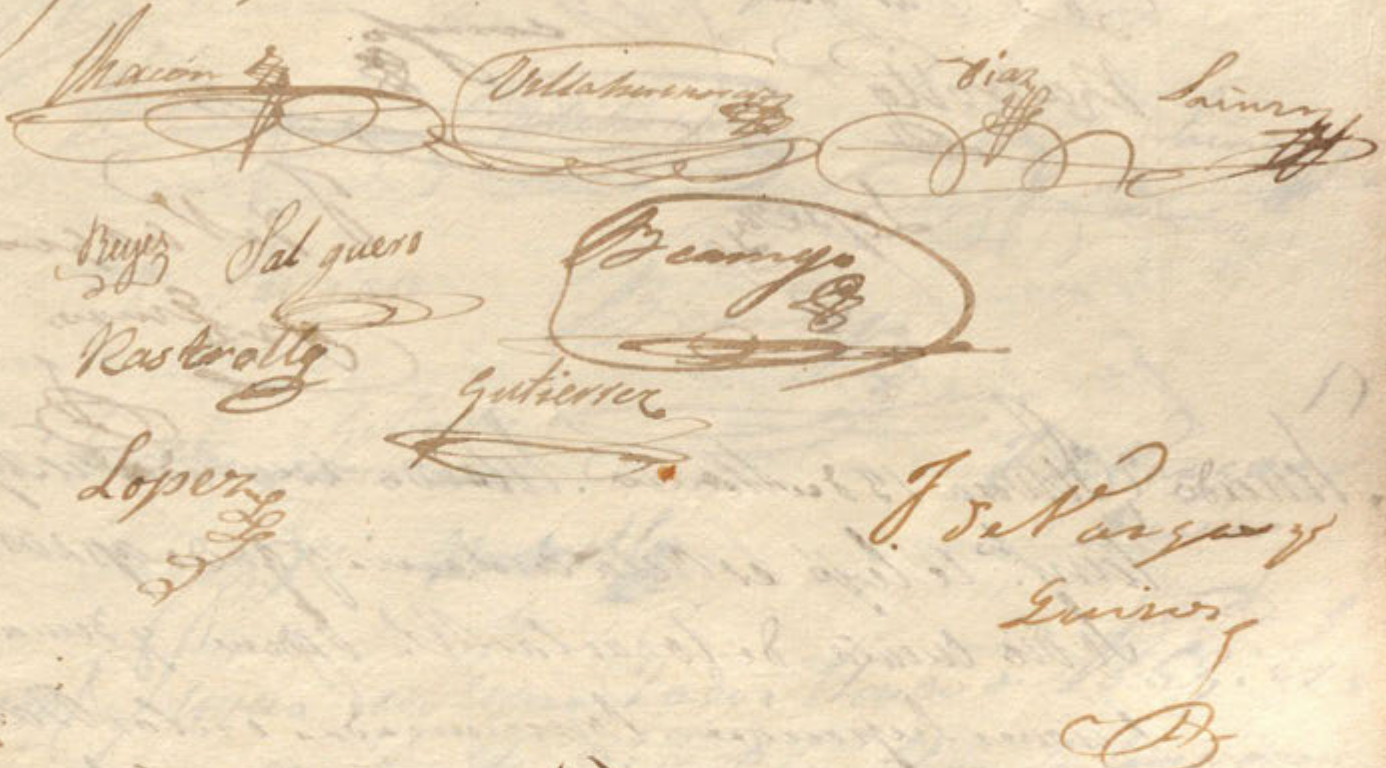 Chacón Diaz Sainz
Reyes Salguero Bcamgo
Rastrollo
Gutierrez
Lopez
J. de Vargas y
Quiros